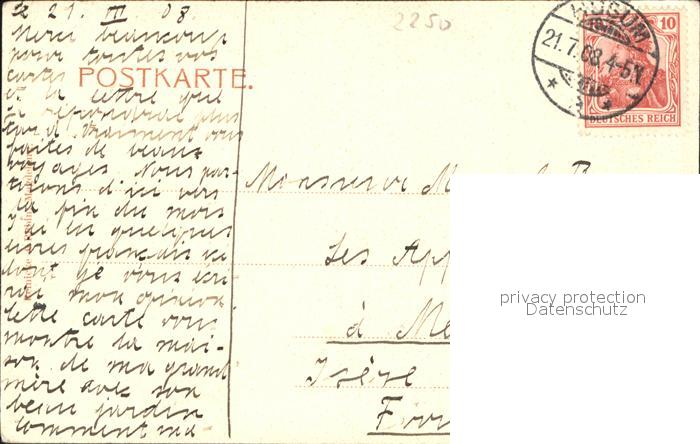 le 21. VII 08.
Merci beaucoup
pour toutes vos
cartes
POSTKARTE.
et la lettre que
je repondrai plus
tard. Vraiment vous
faites de beaux
voyages. Nous par-
tirons d'ici vers
la fin du mois
J'ai eu quelques
livres français ici
dont je vous écri-
rai mon opinion
Cette carte vous
montre la mai-
son de ma grand
mère avec son
beau jardin
Comment ma
2250
HUSUM
21.7.08.4-5N.
10
DEUTSCHES REICH
Monsieur M
Les App
à Me
Isère
privacy protection
Datenschutz